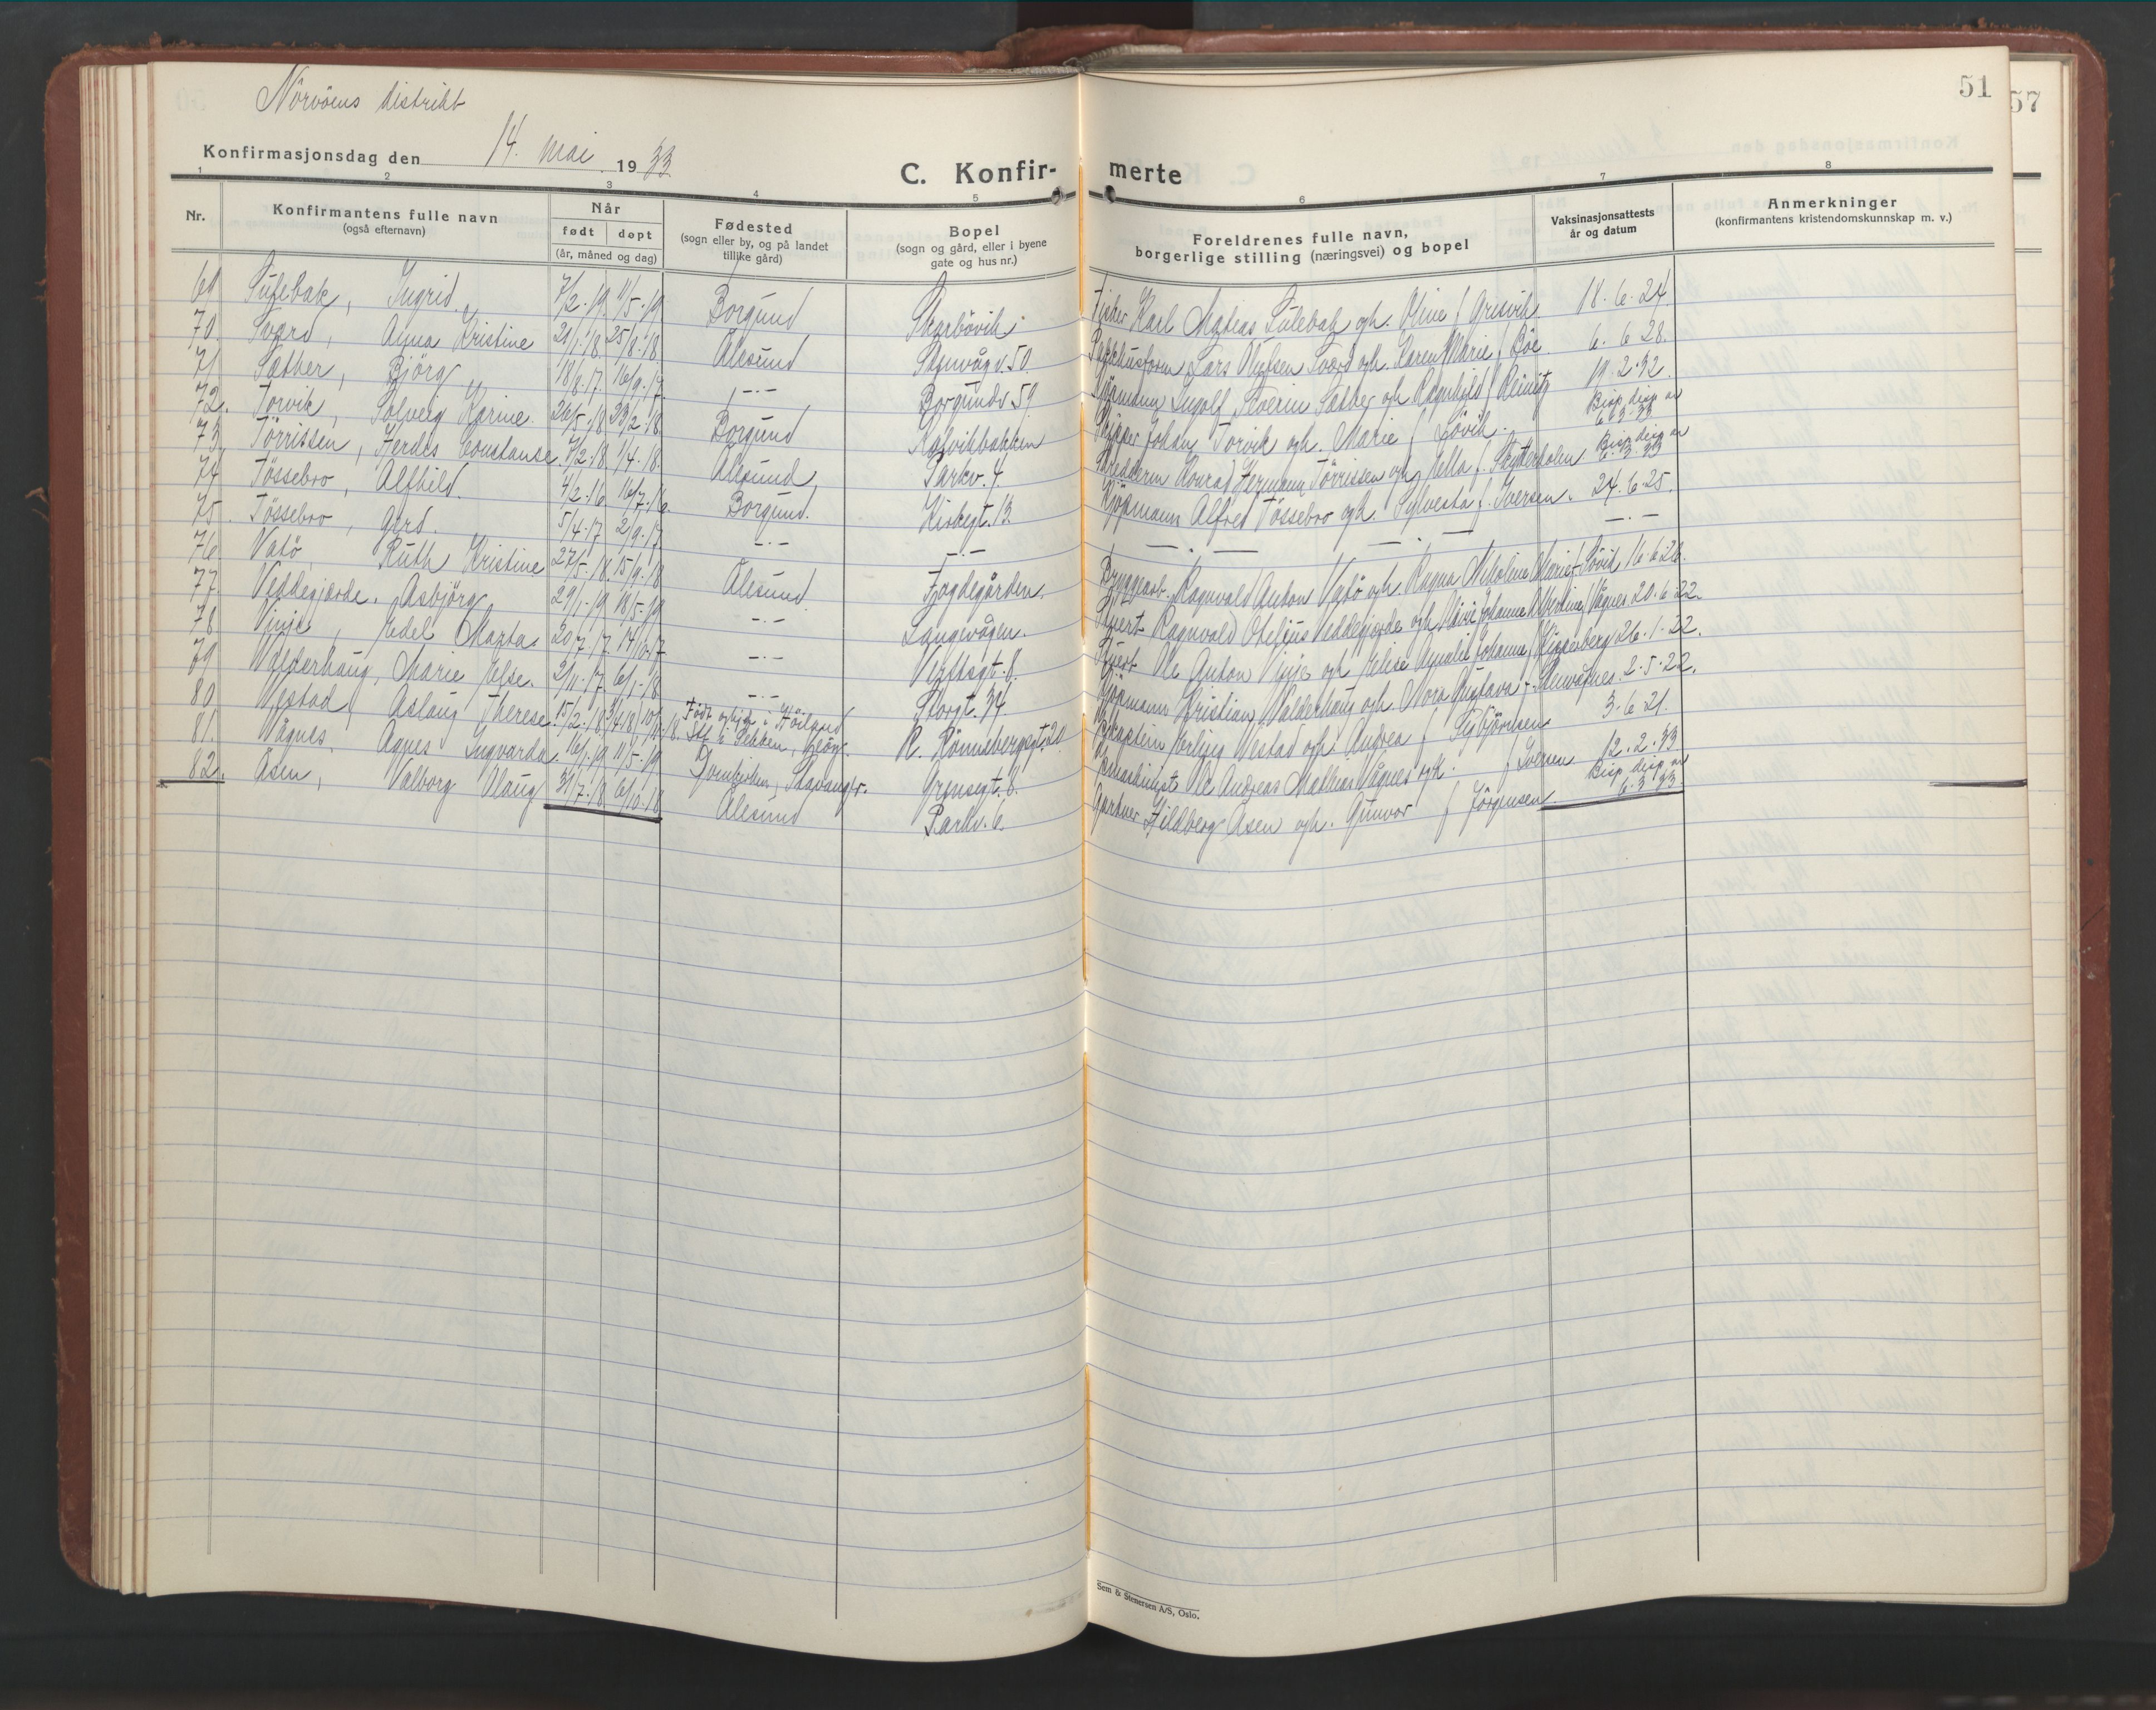 51
57
Nörvöens distrikt
Konfirmasjonsdag den 14. mai 1933
C. Konfir- merte
1 2 3 4 5 6 7 8
Nr. Konfirmantens fulle navn (også efternavn) Når født døpt (år, måned og dag) Fødested (sogn eller by, og på landet tillike gård) Bopel (sogn og gård, eller i byene gate og hus nr.) Foreldrenes fulle navn, borgerlige stilling (næringsvei) og bopel Vaksinasjonsattests år og datum Anmerkninger (konfirmantens kristendomskunnskap m. v.)
69 Sulebak, Ingrid. 7/2.19. 11/5.19 Borgund Skarbövik. Fisker Karl Matias Sulebak og h. Oline f. Grisvik. 18.6.24.
70. Sværd, Alma Kristine 21/1.18. 25/8.18 Ålesund Stenvåg v. 50. Lars sen Sværd og h. Karen Marie f. Böe. 6. 6 28.
71 Sæther, Björg 18/8.17. 16/9.17. -.- Borgundv 59 Ingolf Severin Sæther og h. Ragnhild f. 19.2.32.
72. Torvik, Solveig Karine. 26/5.18. 23/2.18. Borgund Kalvikbakken Skipper Johan Torvik og h. Marie f. Lövik. Bisp. disp. av 6.3.33
73 Törrissen, Herdis Constanse 7/2.18. 1/4.18. Ålesund Parkv. 4. Konrad Hermann Törrissen og h. Ella f. Skytterholm Bisp. disp. av 6.3.33
74 Tössebro, Alfhild. 4/2.16. 16/7.16. Borgund. Kirkegt. 13. Kjöpmann Alfred Tössebro og h. Sylvesta f. Iversen. 24.6.25.
75. Tössebro, Gerd. 5/4.17 2/9.17. -.- -.- -.- -.- -.-
76 Vatö, Ruth Kristine 27/5.18. 15/9.18 Ålesund Fogdegården. Bryggearb. Ragnvald Anton Vatö og h. Ragna Nikoline Marie f. Lövik 16.6.26.
77 Veddegjerde, Asbjörg 29/1.19 18/5.19 -.- Langevågen. Ragnvald Veddegjerde og h. Johanna f. Vågnes 20.6.22.
78 Vinje, Edel Marta 20/7.17. 14/10.17 -.- Verftsgt. 8. Ole Anton Vinje og h. Elise Amalie Johanne f. 26.1.22.
79 Valderhaug, Marie Else. 2/11.17. 6/1.18 -.- Storgt. 34. Kjöpmann Kristian Valderhaug og h. Nora Gustava f. 2.5.22.
80. Vestad, Aslaug Therese 15/2.18 3/4.18 Född og hjd. i Frkapt. i Sekken, R. Rönnebergsgt. 20 Erling Vestad og h. Andrea f. Sigbjörnsen 3.6.21.
81. Vågnes, Agnes Ingvarda 16/1.19 11/5.19 Domkirken, Stavanger. Grensegt. 8. Maskinist Ole Andreas Mathias Vågnes og h. f. Iversen 12.2.33
82. Åsen, Valborg Olaug 31/7.18 6/10.18 Ålesund Parkv. 6. Gartner Hildberg Åsen og h. Gunvor f. Jörgensen. Bisp. disp. av 6.3.33.
Sem & Stenersen A/S, Oslo.